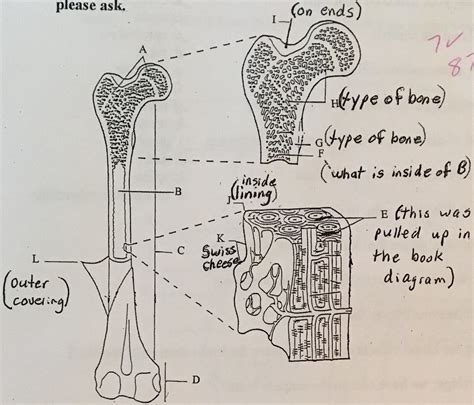 please ask.
I
(on ends)
A
7v
8
H
(type of bone)
G
(type of bone)
F
(what is inside of B)
B
inside
(lining)
J
E (this was
pulled up in
the book
diagram)
K
Swiss
cheese
C
L
(outer
covering)
D